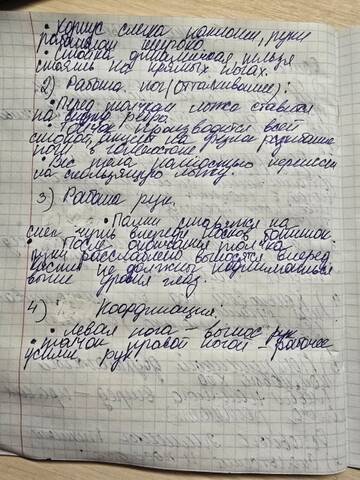 • Корпус слегка наклонен, руки
работают широко
• Стойка динамичная, нельзя
стоять на прямых ногах.
2) Работа ног (Отталкивание):
• Перед толчком лыжа ставится
на внутр ребро.
• Толчок производится всей
стопой, опускаясь на другую
ногу в голеностопе
• Вес тела полностью переносим
на скользящую лыжу.
3) Работа рук.
• Палки ставятся на
снег чуть впереди носков ботинок.
• После окончания толчка
руки расслабленно выносятся вперед
кисти не должны подниматься
выше уровня глаз.
4) Координация.
• левая нога – вынос рук
• толчок правой ногой – рабочее
усилие рук